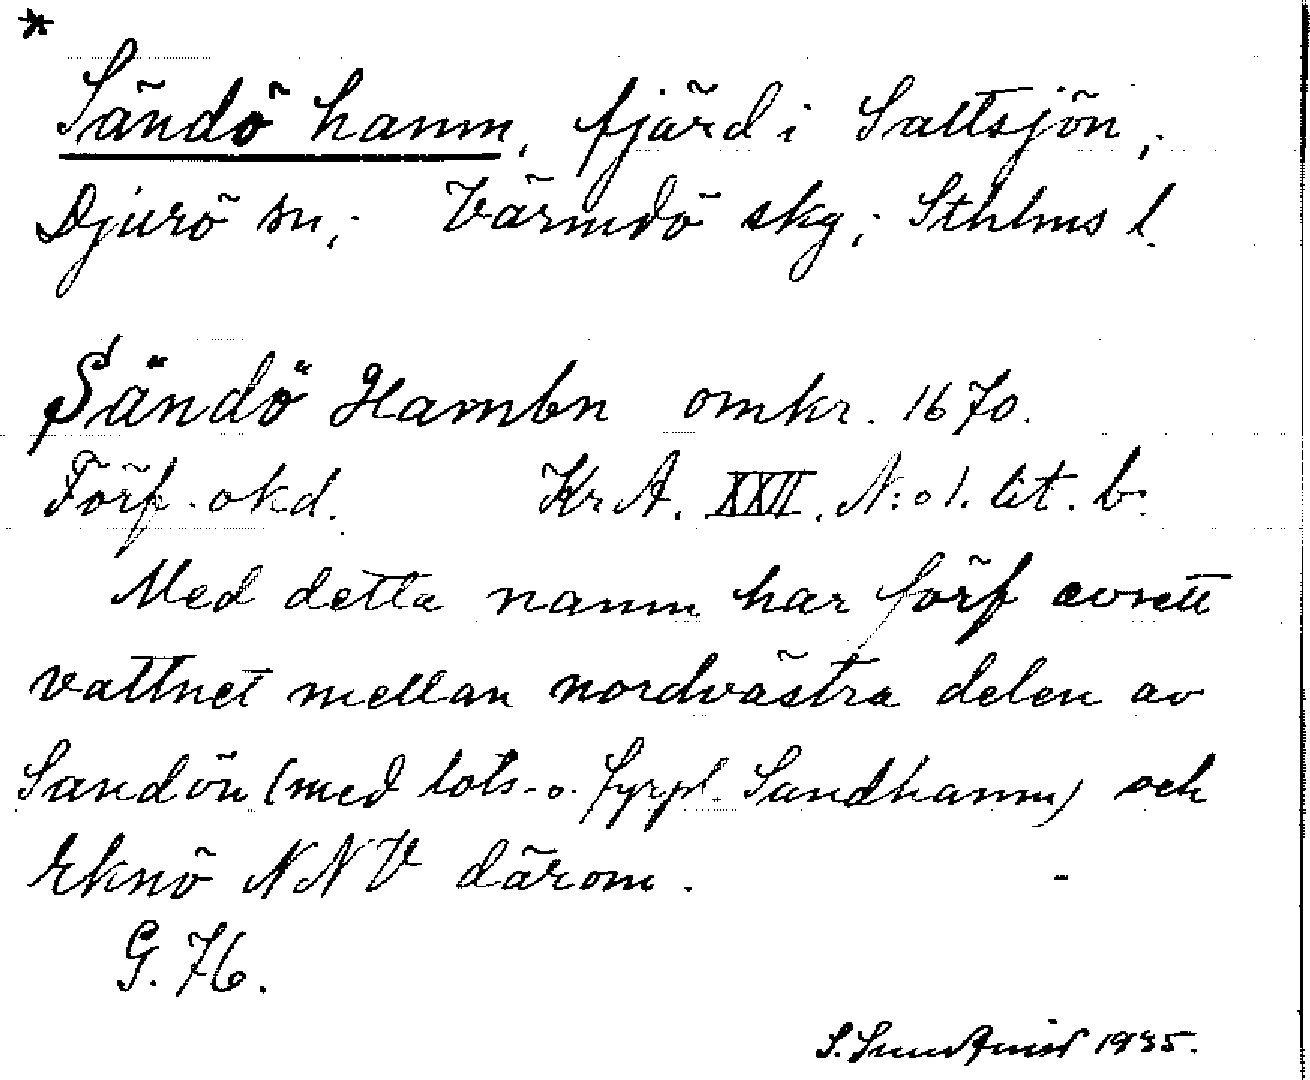 *
Sändö hamn, fjärd i Saltsjön,
Djurö sn; Värmdö skg; Sthlms l.
Sändö Hambn omkr. 1670.
Förf. okd. Kr. A. XXII. N:o 1. lit. b.
Med detta namn har förf avsett
vattnet mellan nordvästra delen av
Sandön (med lots- o. fyrpl. Sandhamn) och
Eknö NNV därom. -
G. 76.
S. 1935.